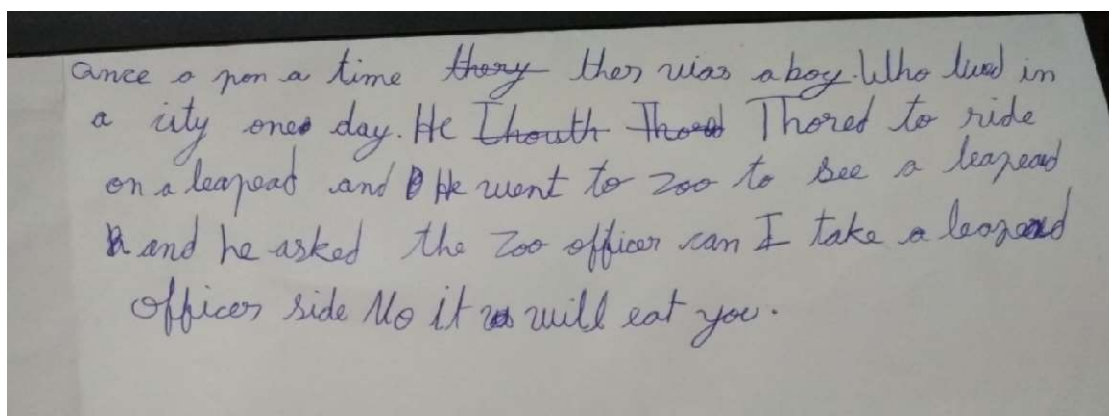 ance o pon a time thory ther wias a boy. Who lived in
a city one day. He Thouth Thored Thored to ride
on a leapead and He went to zoo to see a leapead
and he asked the Zoo officer can I take a leapead
officer side No it will eat you.